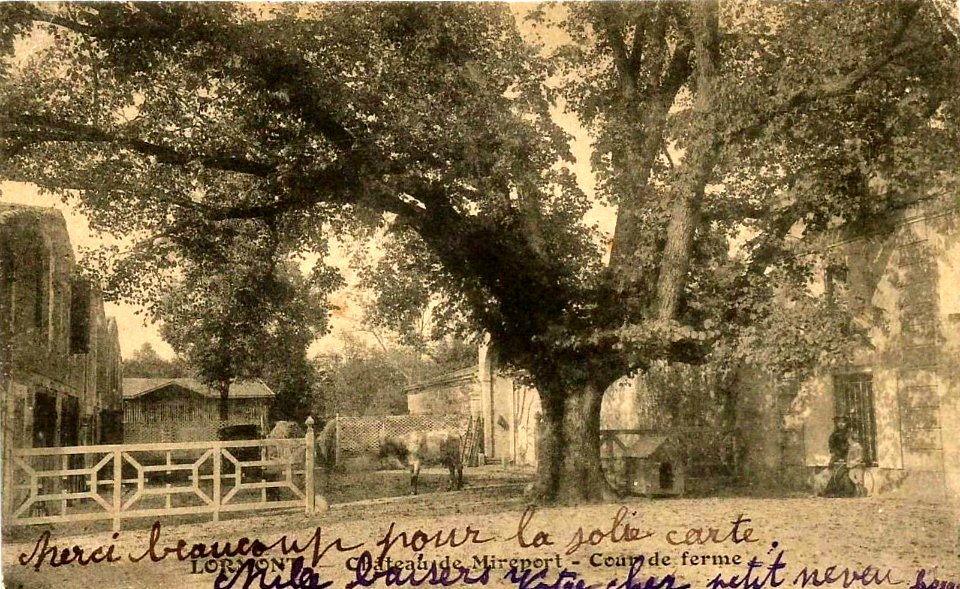 merci beaucoup pour la jolie carte.
LORMONT - Château de Mireport - Cour de ferme
Mile baisers Votre cher petit neveu